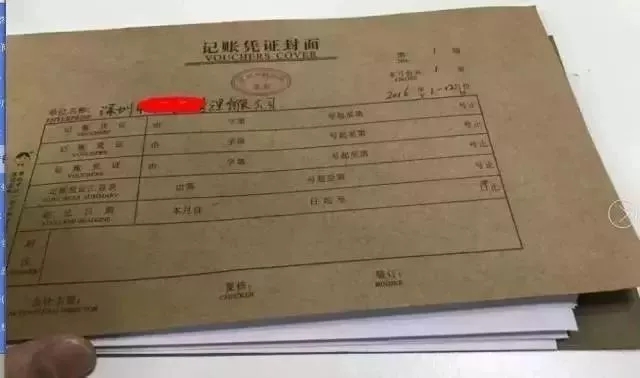 记账凭证封面
VOUCHERS COVER
第 1 号
本月共 1 册
单位名称: 深圳 管理有限公司
2016年 1-12月份
记账凭证 由 字第 号起至第 号止
VOUCHERS
记账凭证 由 字第 号起至第 号止
VOUCHERS
记账凭证 由 字第 号起至第 号止
VOUCHERS
记账凭证汇总表 由第 号起至第 号止
VOUCHERS SUMMARY
起讫日期 本月自 日起至 日止
附
注
会计主管:
ACCOUNTING DIRECTOR
复核:
CHECKER
装订:
BINDER